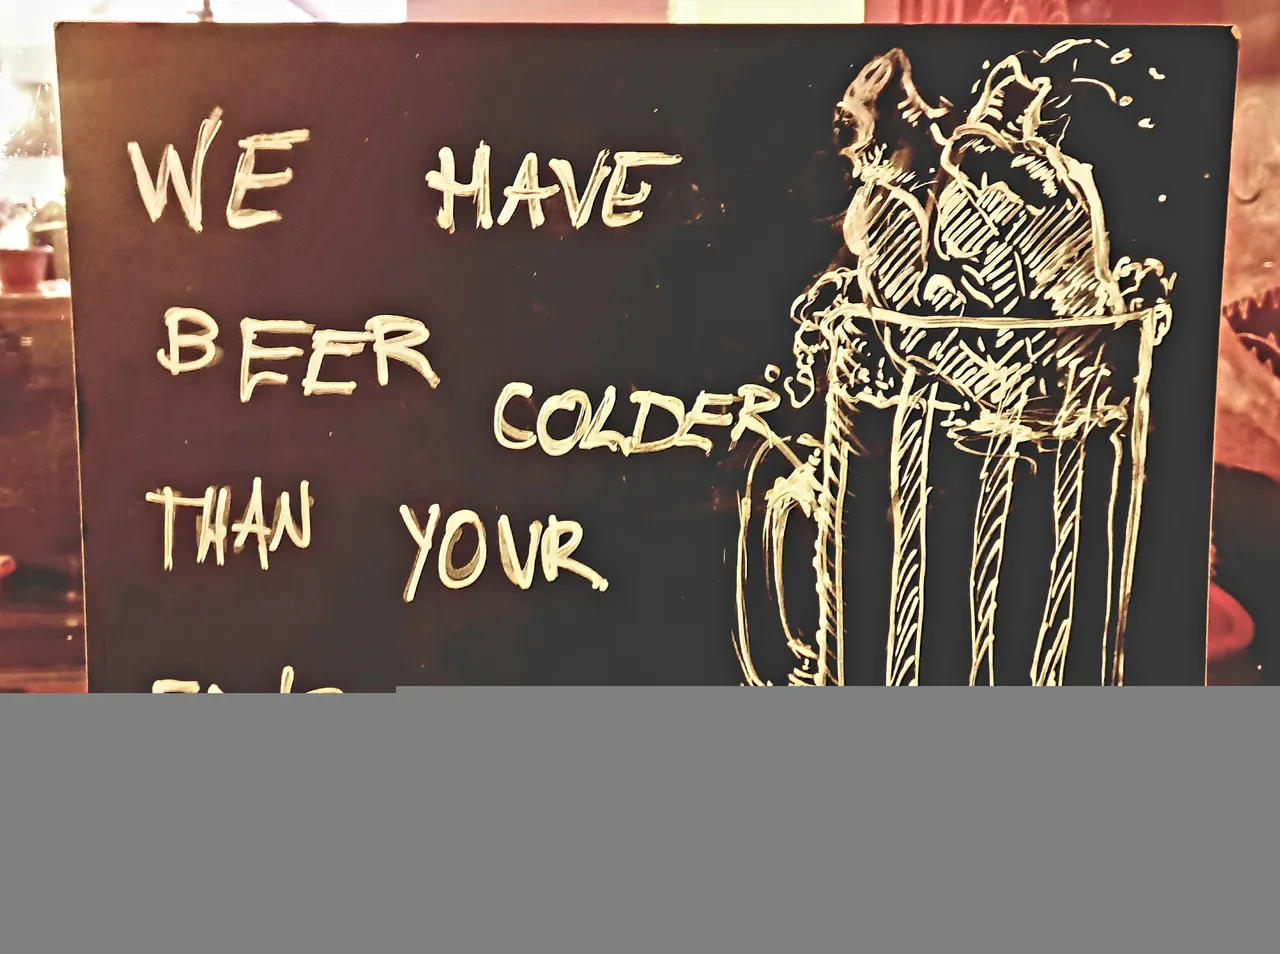 WE HAVE
BEER COLDER
THAN YOUR